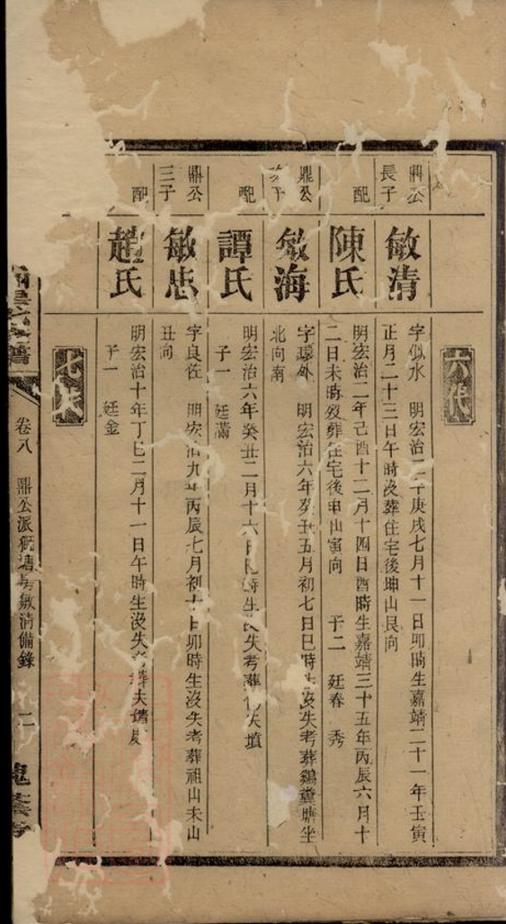 六代
鼎公
長子
敏清
字似水 明宏治三年庚戌七月十一日卯時生嘉靖二十一年壬寅
正月二十三日午時沒葬住宅後坤山艮向
配
陳氏
明宏治二年己酉十二月十四日酉時生嘉靖三十五年丙辰六月十
二日未時歿葬住宅後申山寅向 子二 廷春 秀
鼎公
敏海
字環外 明宏治六年癸丑五月初七日巳時生沒失考葬鷄糞塘坐
北向南
配
譚氏
明宏治六年癸丑二月十六日 時生沒失考葬 夫墳
子一 廷滿
鼎公
三子
敏忠
字良佐 明宏治九年丙辰七月初十日卯時生沒失考葬祖山未山
丑向
配
趙氏
明宏治十年丁巳二月十一日午時生沒失考葬夫墳
子一 廷金
七代
卷八 鼎公派 塘房敏清備錄 二